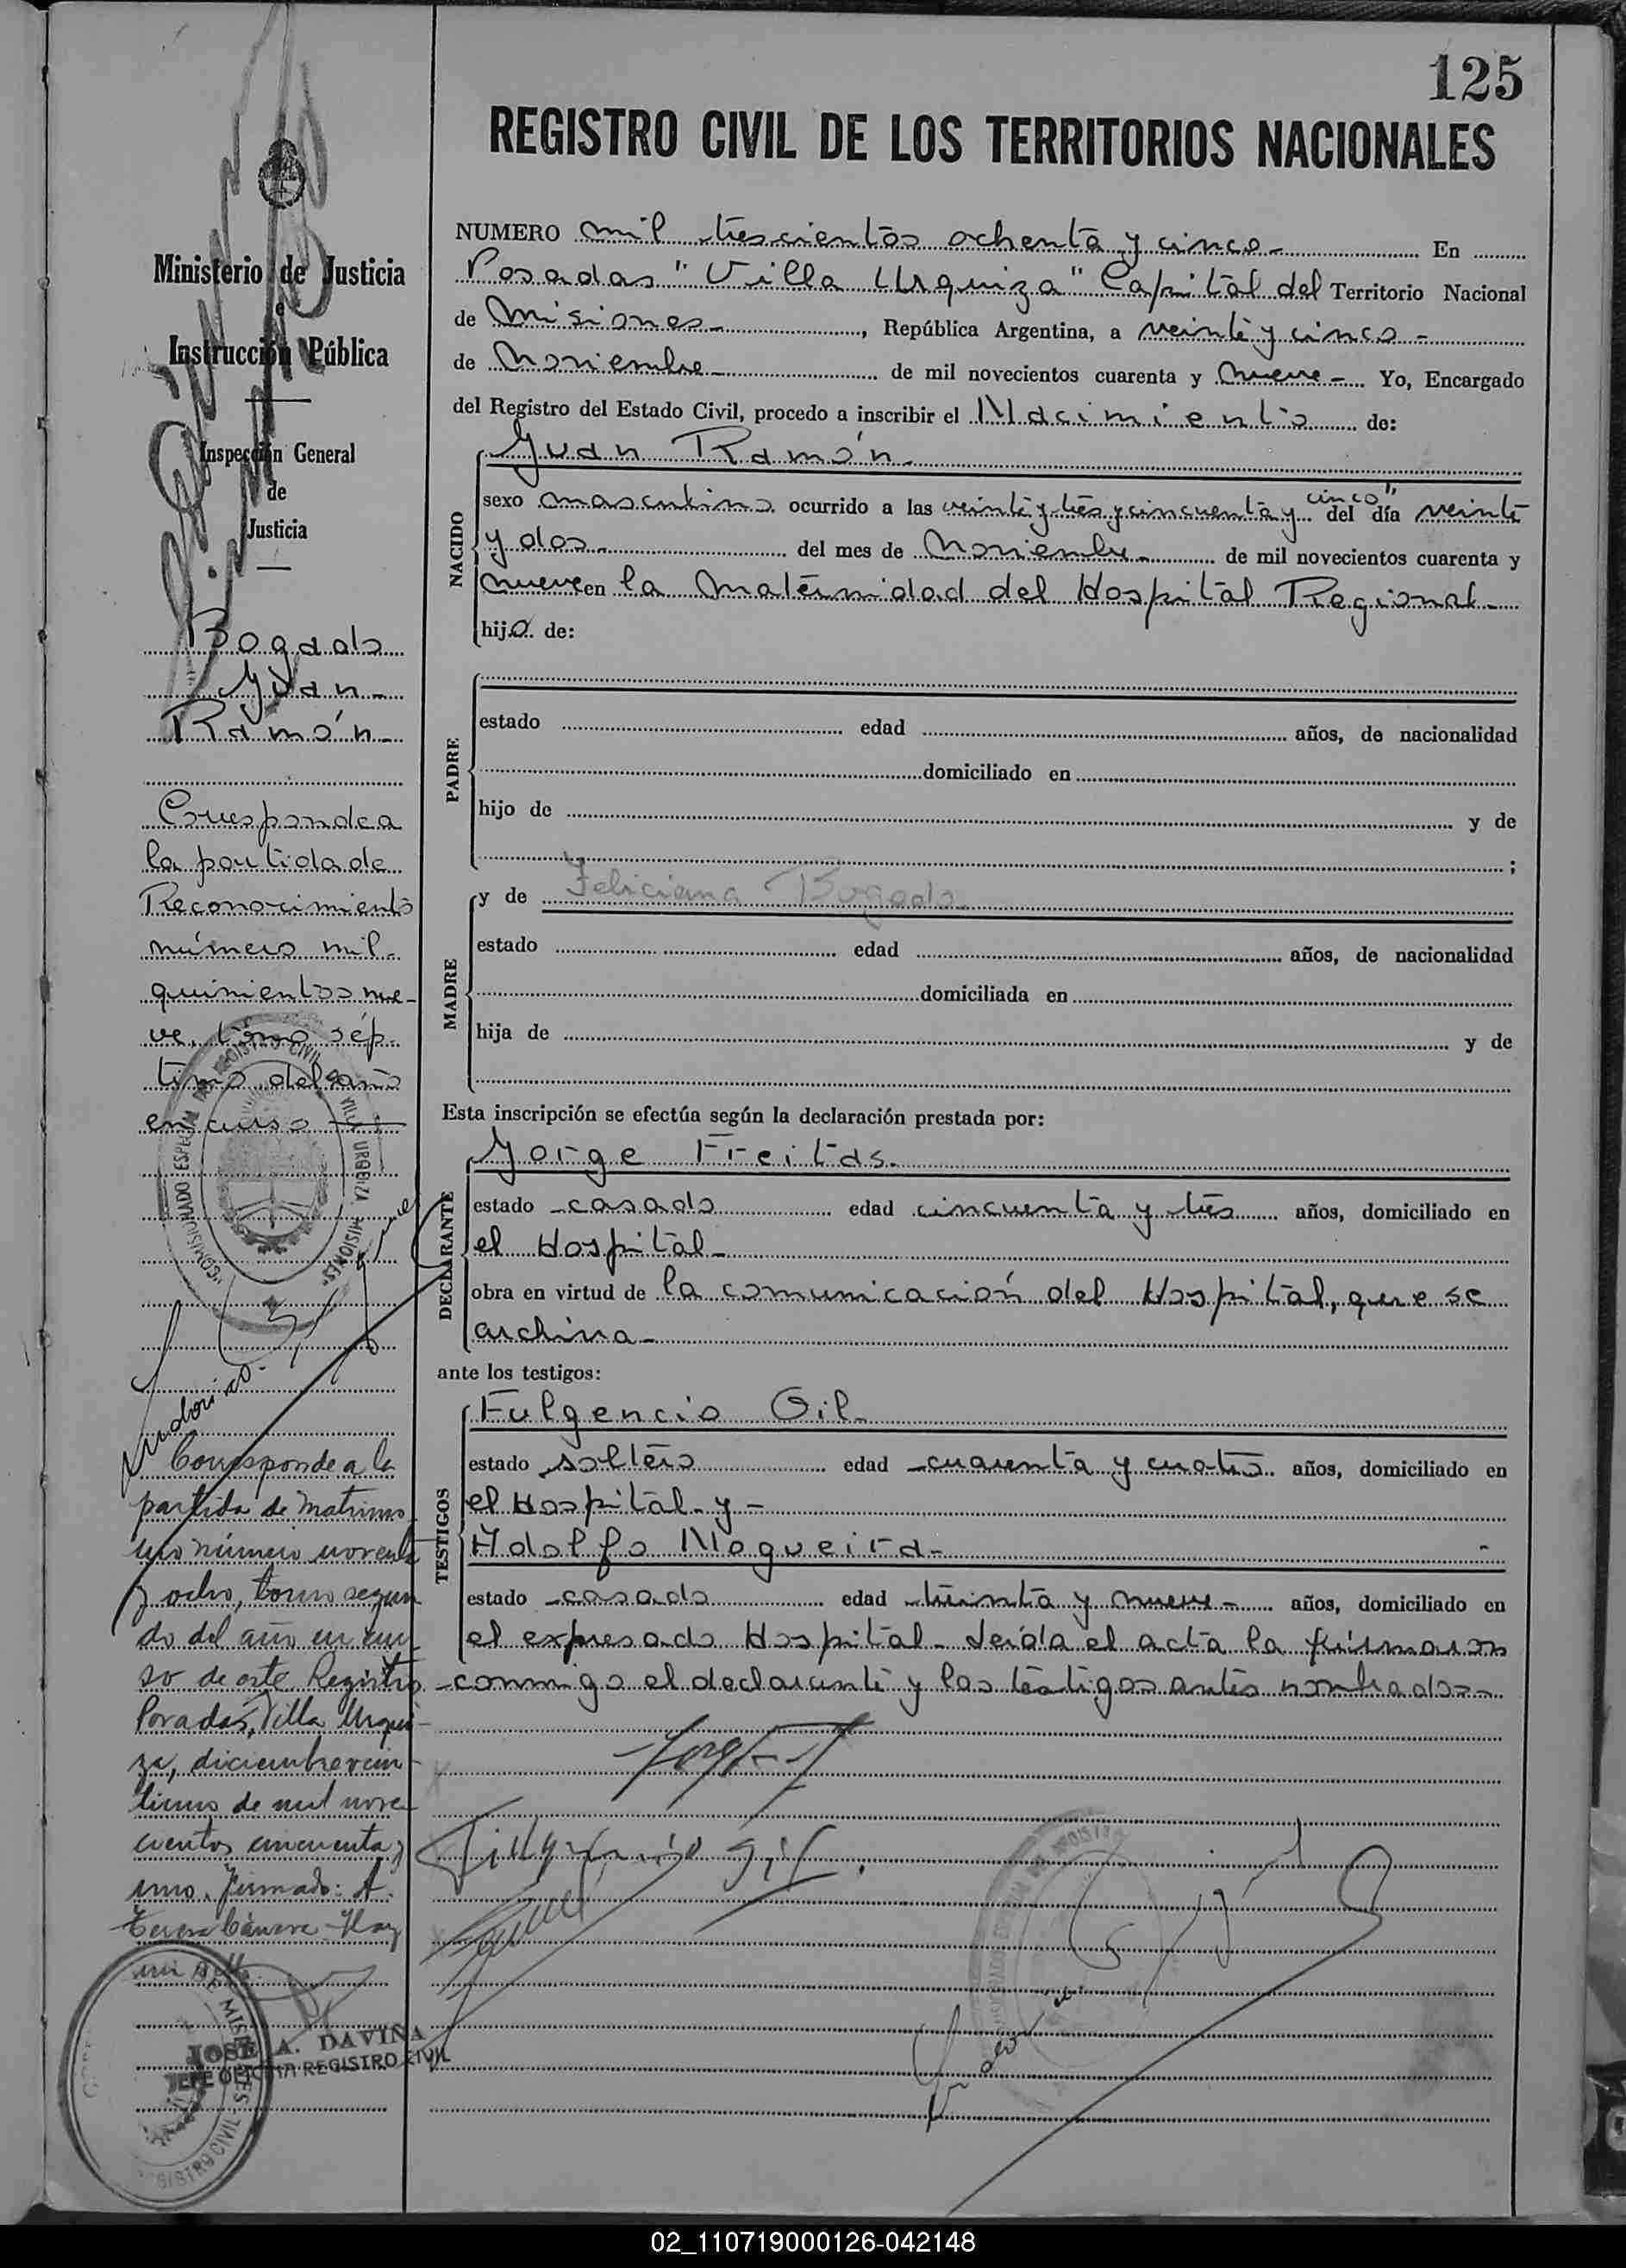 125
REGISTRO CIVIL DE LOS TERRITORIOS NACIONALES
Ministerio de Justicia
e
Instrucción Pública
Inspección General
de
Justicia
Bogado
Juan
Ramón
Corresponde a
la partida de
Reconocimiento
número mil
quinientos nue-
ve, tomo sép-
timo del año
en curso
Corresponde a la
partida de matrimo
nio número noventa
y ocho, tomo segun
do del año en cur
so de este Registro
Posadas, Villa Urqui-
za, diciembre vein-
tiuno de mil nove
cientos cincuenta y
uno. firmado: A.
JOSE A. DAVIÑA
JEFE OFICINA REGISTRO CIVIL
NUMERO mil trescientos ochenta y cinco- En
Posadas "Villa Urquiza" Capital del Territorio Nacional
de Misiones-, República Argentina, a veinte y cinco-
de Noviembre- de mil novecientos cuarenta y nueve- Yo, Encargado
del Registro del Estado Civil, procedo a inscribir el Nacimiento de:
NACIDO
Juan Ramón-
sexo masculino ocurrido a las veinte y tres y cincuenta y cinco" del día veinte
y dos- del mes de Noviembre- de mil novecientos cuarenta y
nueve en la Maternidad del Hospital Regional-
hijo de:
PADRE
estado edad años, de nacionalidad
domiciliado en
hijo de y de
;
MADRE
y de Feliciana Bogado-
estado edad años, de nacionalidad
domiciliada en
hija de y de
Esta inscripción se efectúa según la declaración prestada por:
DECLARANTE
Jorge Freitas-
estado casado edad cincuenta y tres años, domiciliado en
el Hospital-
obra en virtud de la comunicación del Hospital, que se
archiva-
ante los testigos:
TESTIGOS
Fulgencio Gil-
estado soltero edad cuarenta y cuatro años, domiciliado en
el Hospital- y -
Adolfo Nogueira-
estado casado edad treinta y nueve- años, domiciliado en
el expresado Hospital- Leída el acta la firmaron
conmigo el declarante y los testigos antes nombrados-
02_110719000126-042148